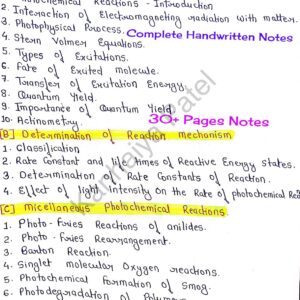 Photochemical Reactions - Introduction
2. Interaction of Electromagneting radiation with matter.
3. Photophysical Process.
Complete Handwritten Notes
4. Stern Volmer Equations.
5. Types of Excitations.
6. Fate of Excited molecule.
7. Transfer of Excitation Energy.
8. Quantum Yield.
9. Importance of Quantum Yield.
30+ Pages Notes
10. Actinometry.
[B] Determination of Reaction mechanism
1. Classification
2. Rate Constant and life times of Reactive Energy states.
3. Determination of Rate Constants of Reaction.
4. Effect of light intensity on the Rate of photochemical
[C] Miscellaneous Photochemical Reactions
1. Photo-fries Reactions of anilides.
2. Photo-fries Rearrangement.
3. Barton Reaction.
4. Singlet molecular Oxygen reactions.
5. Photochemical Formation of Smog.
6. Photodegradation of Polymers